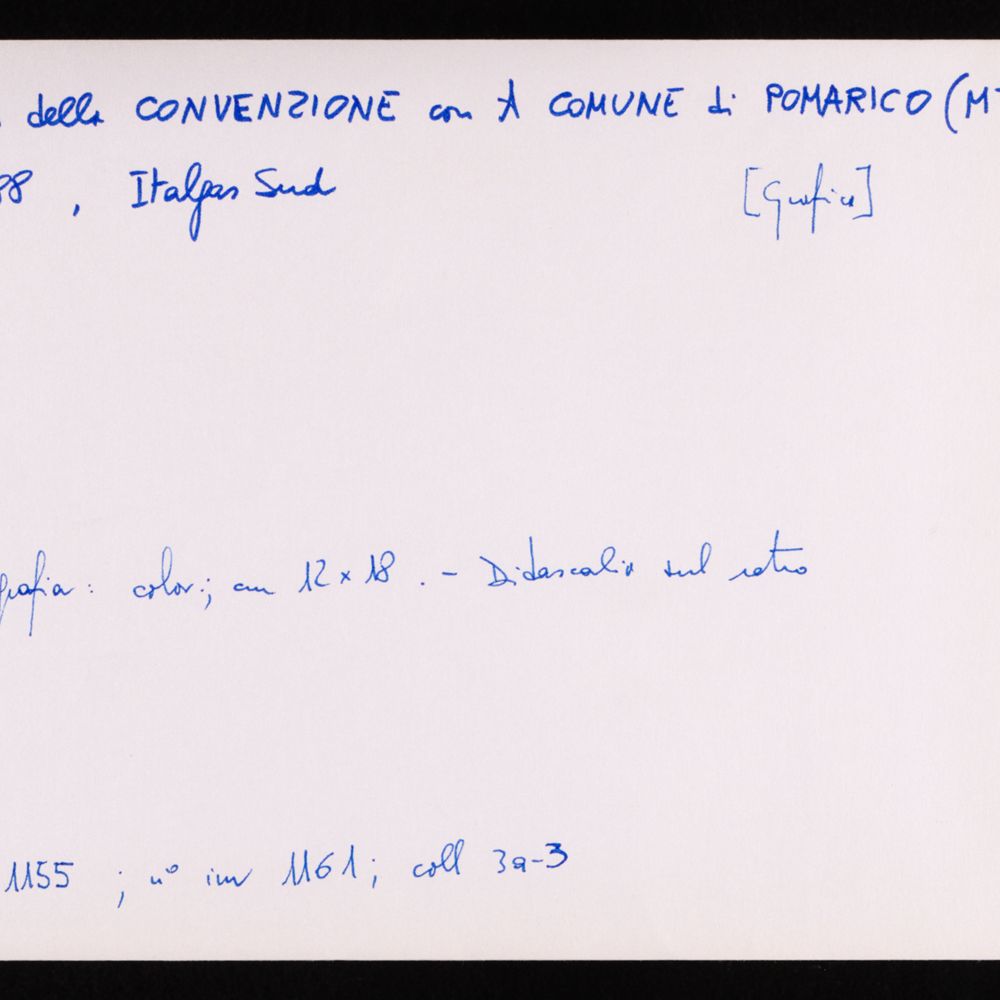 della CONVENZIONE con il COMUNE di POMARICO (MT
88, Italgas Sud [Grafica]
grafia: color.; cm 12x18. - Didascalia sul retro
1155 ; n° inv 1161; coll 3a-3